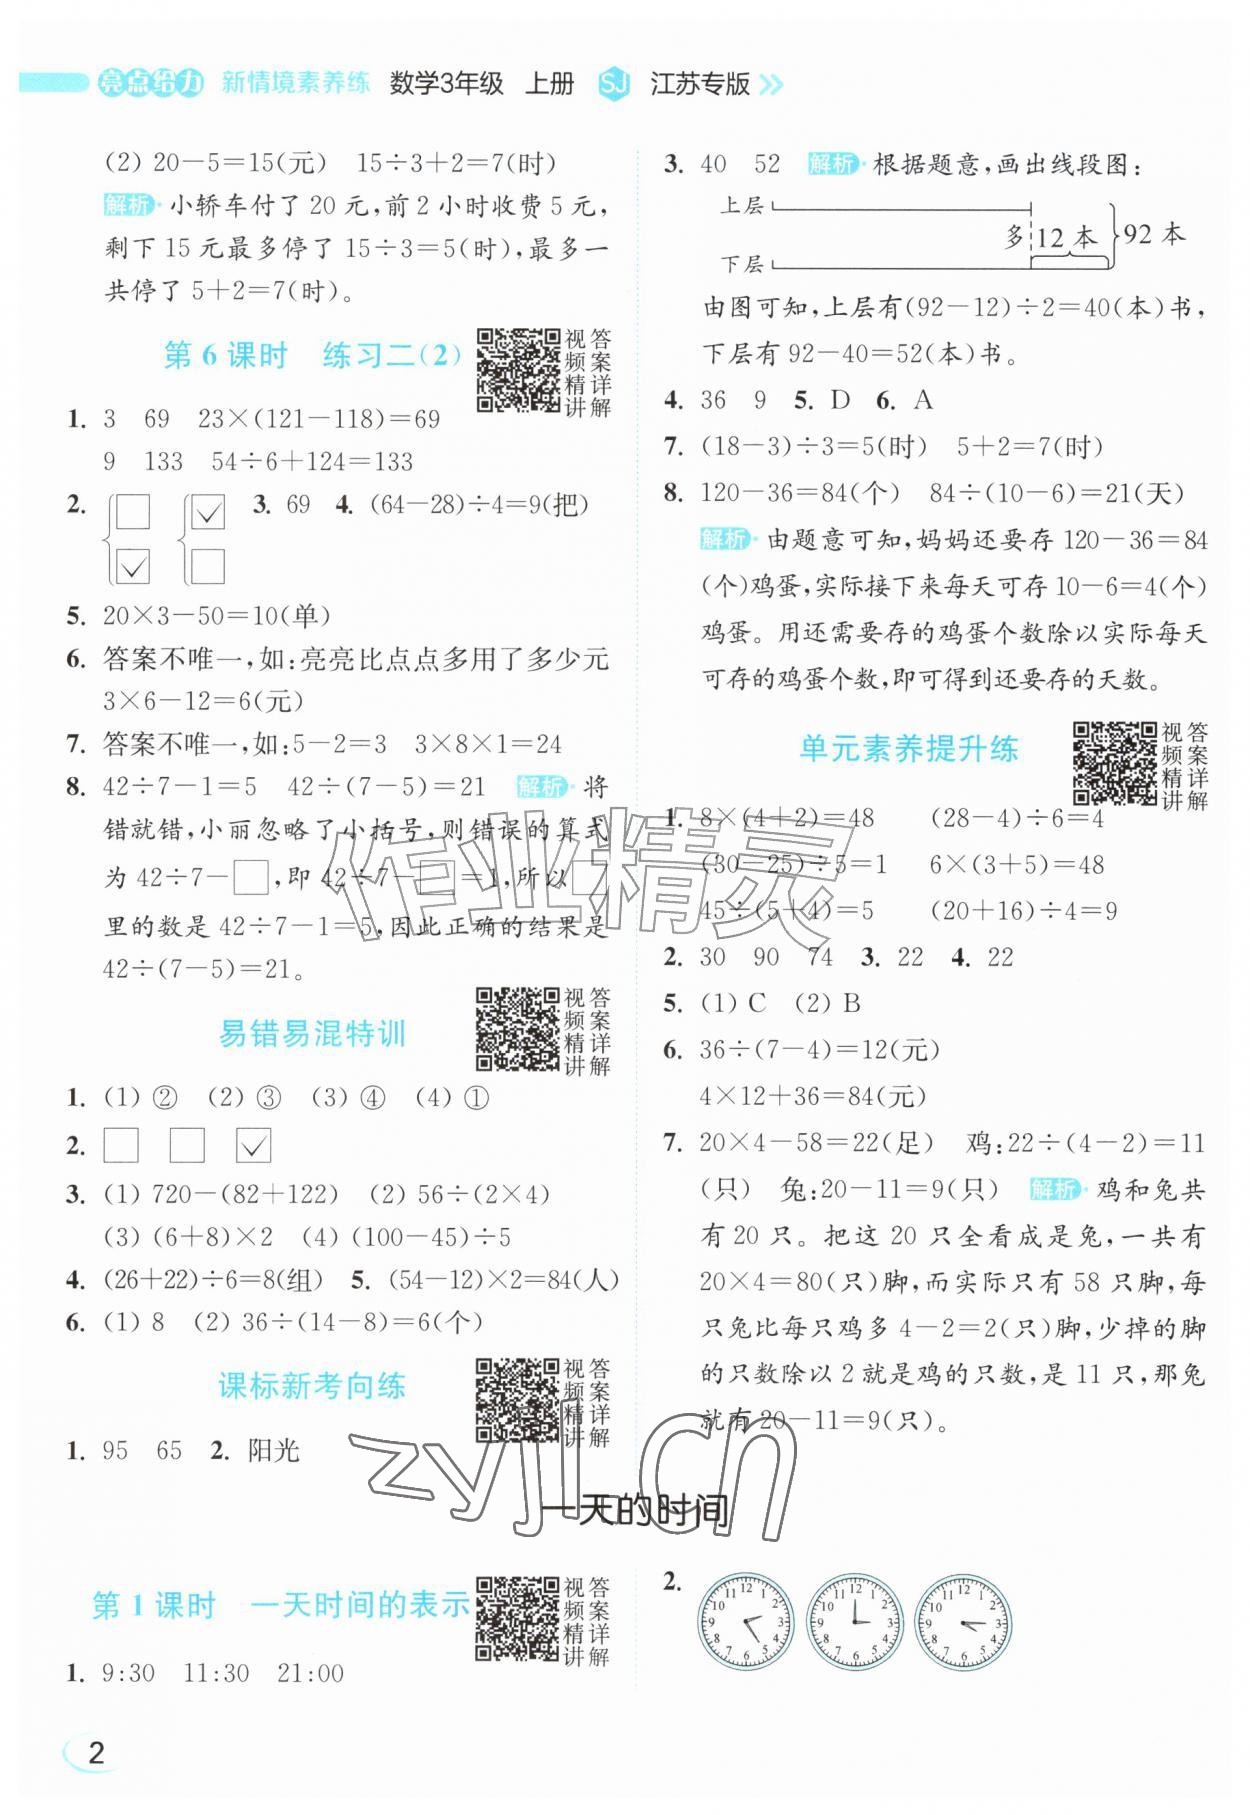 亮点给力 新情境素养练 数学3年级 上册 SJ 江苏专版
(2) 20−5=15(元) 15÷3+2=7(时)
解析 小轿车付了 20 元,前 2 小时收费 5 元,
剩下 15 元最多停了 15÷3=5(时),最多一
共停了 5+2=7(时)。
第 6 课时 练习二(2)
视频精讲 答案详解
1. 3 69 23×(121−118)=69
9 133 54÷6+124=133
2. 3. 69 4. (64−28)÷4=9(把)
5. 20×3−50=10(单)
6. 答案不唯一,如:亮亮比点点多用了多少元
3×6−12=6(元)
7. 答案不唯一,如:5−2=3 3×8×1=24
8. 42÷7−1=5 42÷(7−5)=21 解析 将
错就错,小丽忽略了小括号,则错误的算式
为 42÷7−□,即 42÷7−□=1,所以□
里的数是 42÷7−1=5,因此正确的结果是
42÷(7−5)=21。
易错易混特训
视频精讲 答案详解
1. (1) ② (2) ③ (3) ④ (4) ①
2.
3. (1) 720−(82+122) (2) 56÷(2×4)
(3) (6+8)×2 (4) (100−45)÷5
4. (26+22)÷6=8(组) 5. (54−12)×2=84(人)
6. (1) 8 (2) 36÷(14−8)=6(个)
课标新考向练
视频精讲 答案详解
1. 95 65 2. 阳光
3. 40 52 解析 根据题意,画出线段图:
上层
多 12 本 92 本
下层
由图可知,上层有(92−12)÷2=40(本)书,
下层有 92−40=52(本)书。
4. 36 9 5. D 6. A
7. (18−3)÷3=5(时) 5+2=7(时)
8. 120−36=84(个) 84÷(10−6)=21(天)
解析 由题意可知,妈妈还要存 120−36=84
(个)鸡蛋,实际接下来每天可存 10−6=4(个)
鸡蛋。用还需要存的鸡蛋个数除以实际每天
可存的鸡蛋个数,即可得到还要存的天数。
单元素养提升练
视频精讲 答案详解
1. 8×(4+2)=48 (28−4)÷6=4
(30−25)÷5=1 6×(3+5)=48
45÷(5+4)=5 (20+16)÷4=9
2. 30 90 74 3. 22 4. 22
5. (1) C (2) B
6. 36÷(7−4)=12(元)
4×12+36=84(元)
7. 20×4−58=22(足) 鸡:22÷(4−2)=11
(只) 兔:20−11=9(只) 解析 鸡和兔共
有 20 只。把这 20 只全看成是兔,一共有
20×4=80(只)脚,而实际只有 58 只脚,每
只兔比每只鸡多 4−2=2(只)脚,少掉的脚
的只数除以 2 就是鸡的只数,是 11 只,那兔
就有 20−11=9(只)。
作业精灵
zyjl.cn
一天的时间
第 1 课时 一天时间的表示
视频精讲 答案详解
1. 9:30 11:30 21:00
2.
12 1 2 3 4 5 6 7 8 9 10 11
12 1 2 3 4 5 6 7 8 9 10 11
12 1 2 3 4 5 6 7 8 9 10 11
2